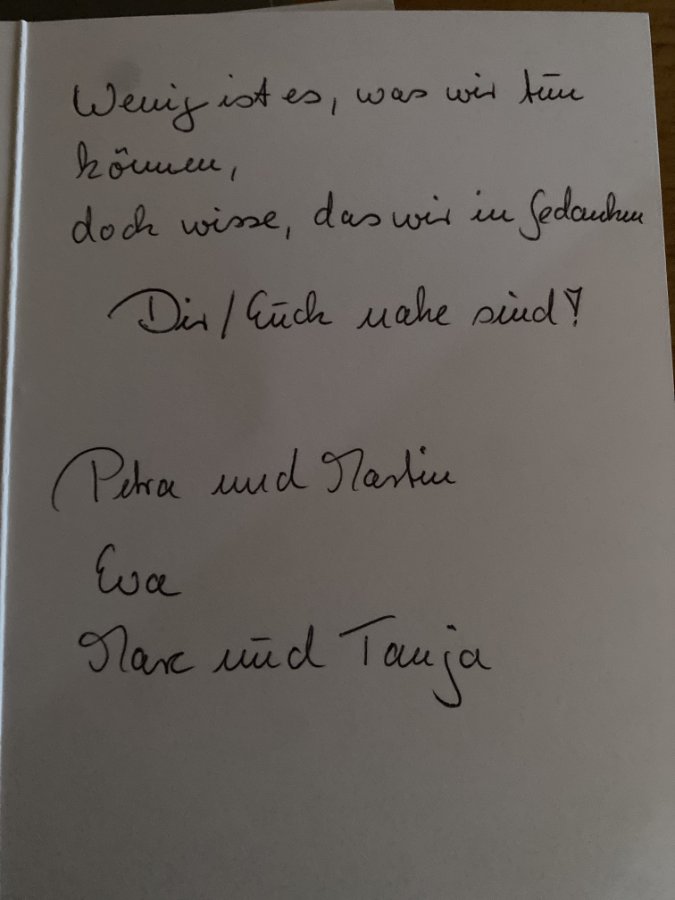 Wenig ist es, was wir tun
können,
doch wisse, das wir in Gedanken
Dir/Euch nahe sind!
Petra und Martin
Eva
Marc und Tanja